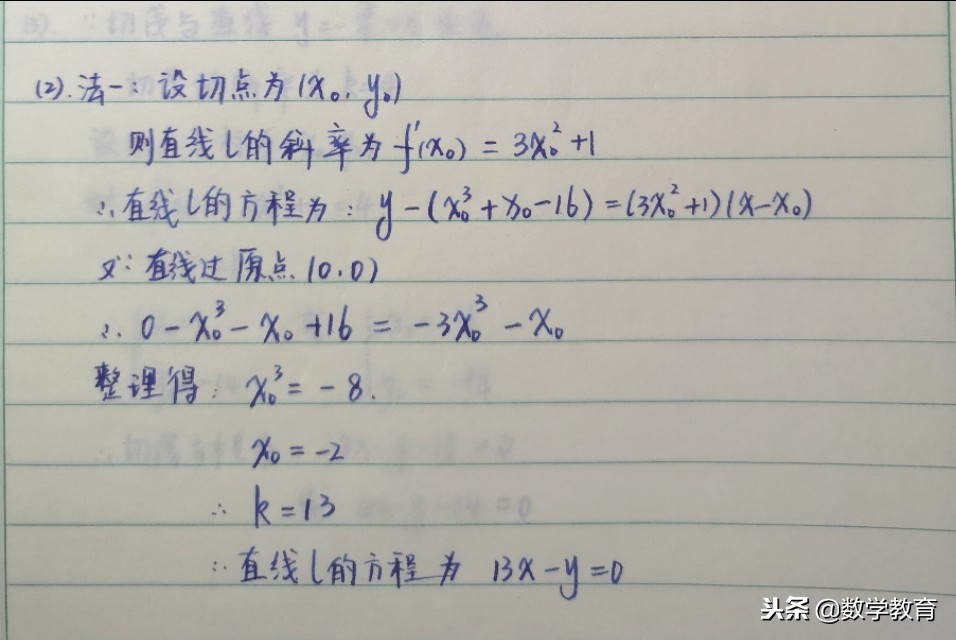 (2).法一:设切点为(x₀,y₀)
则直线l的斜率为f'(x₀)=3x₀²+1
∴直线l的方程为:y-(x₀³+x₀-16)=(3x₀²+1)(x-x₀)
又∵直线过原点(0,0)
∴0-x₀³-x₀+16=-3x₀³-x₀
整理得:x₀³=-8.
x₀=-2
∴k=13
∴直线l的方程为 13x-y=0
头条 @数学教育